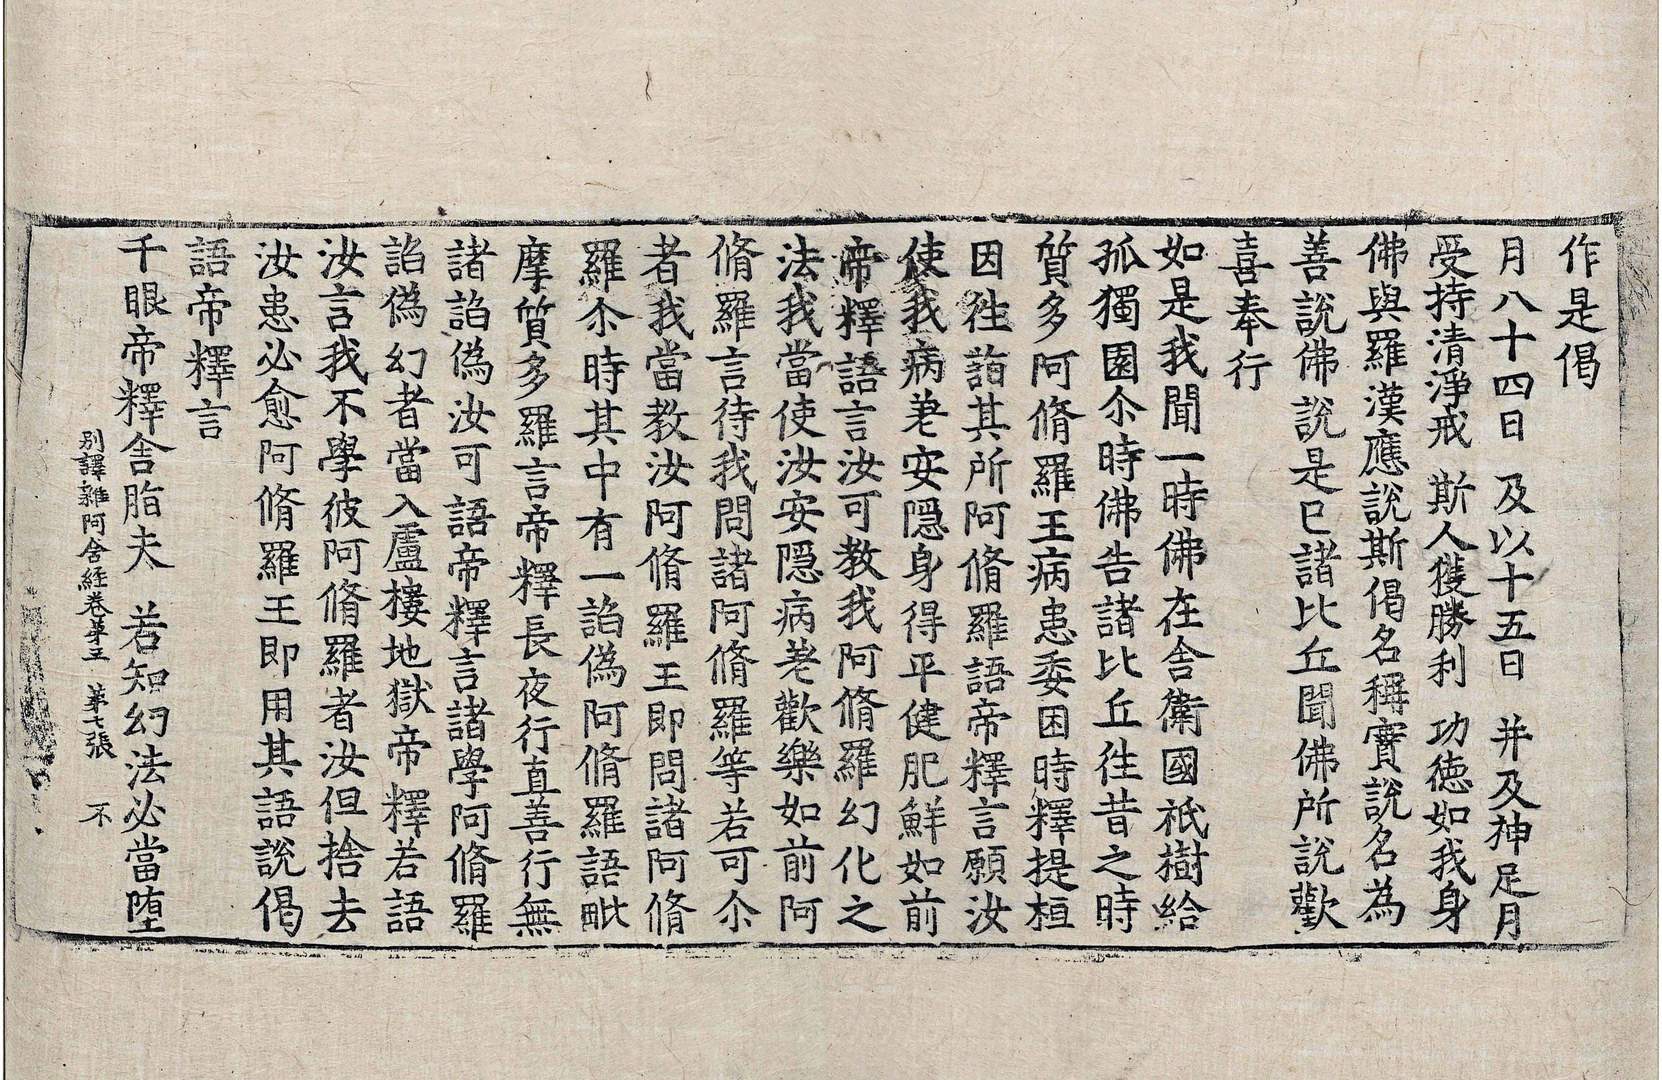 作是偈
月八十四日 及以十五日 并及神足月
受持清淨戒 斯人獲勝利 功德如我身
佛與羅漢應說斯偈名稱實說名為
善說佛說是已諸比丘聞佛所說歡
喜奉行
如是我聞一時佛在舍衛國祇樹給
孤獨園尒時佛告諸比丘往昔之時
質多阿脩羅王病患委困時釋提桓
因往詣其所阿脩羅語帝釋言願汝
使我病差安隱身得平健肥鮮如前
帝釋語言汝可教我阿脩羅幻化之
法我當使汝安隱病差歡樂如前阿
脩羅言待我問諸阿脩羅等若可尒
者我當教汝阿脩羅王即問諸阿脩
羅尒時其中有一諂偽阿脩羅語毗
摩質多羅言帝釋長夜行直善行無
諸諂偽汝可語帝釋言諸學阿脩羅
諂偽幻者當入盧樓地獄帝釋若語
汝言我不學彼阿脩羅者汝但捨去
汝患必愈阿脩羅王即用其語說偈
語帝釋言
千眼帝釋舍脂夫 若知幻法必當墮
別譯雜阿含經卷第三 第七張 不